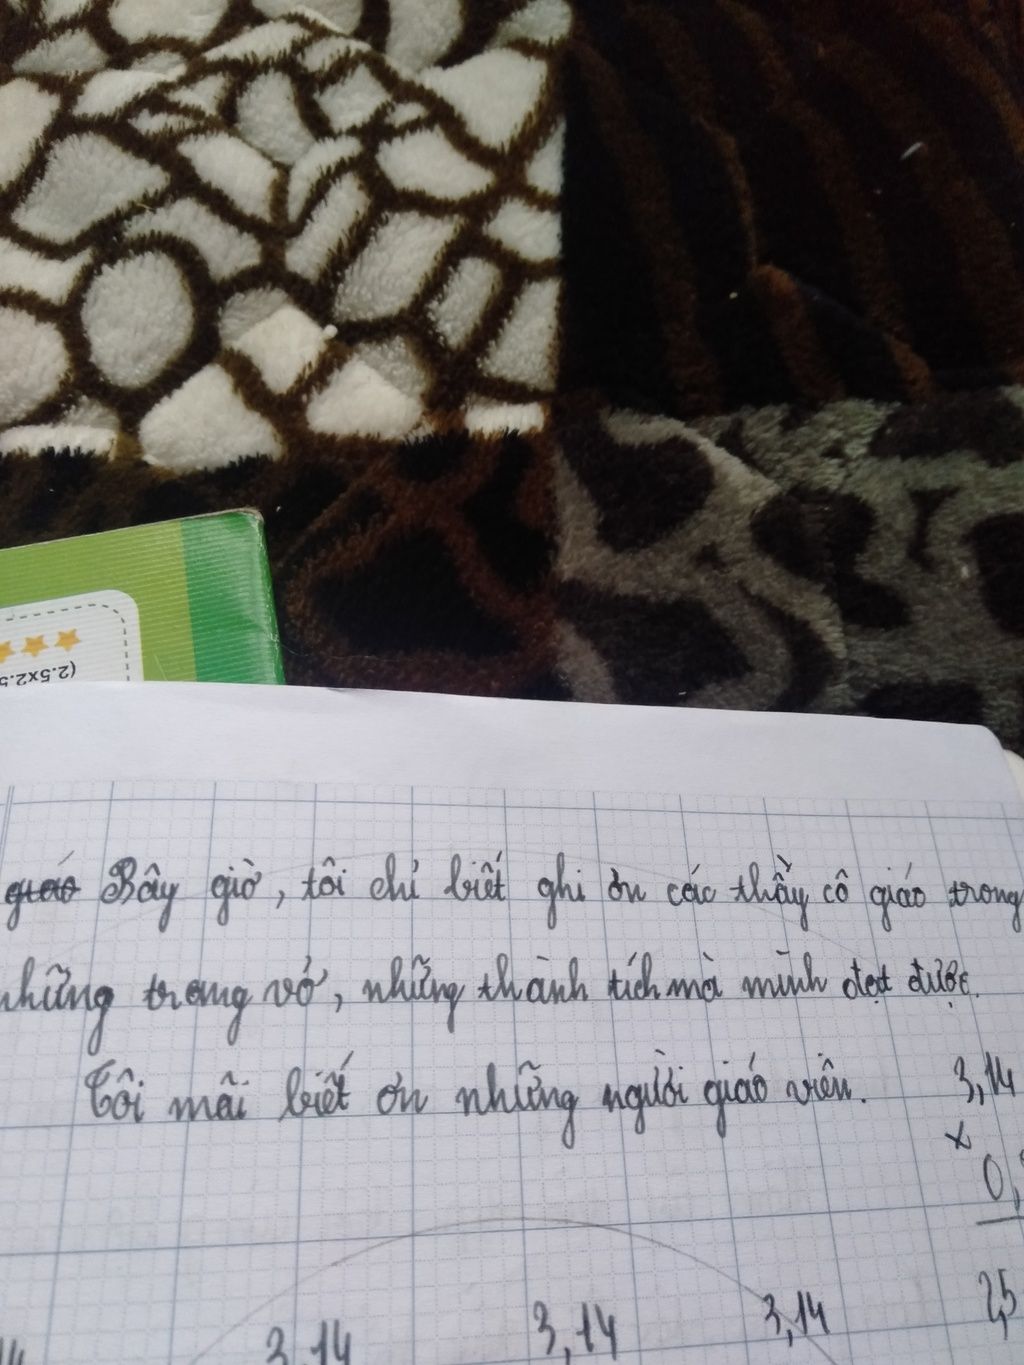 (2.5x2.5
giáo Bây giờ, tôi chỉ biết ghi ơn các thầy cô giáo trong
những trang vở, những thành tích mà mình đạt được.
Tôi mãi biết ơn những người giáo viên.
3,14
x
0,
2,5
3,14
3,14
3,14